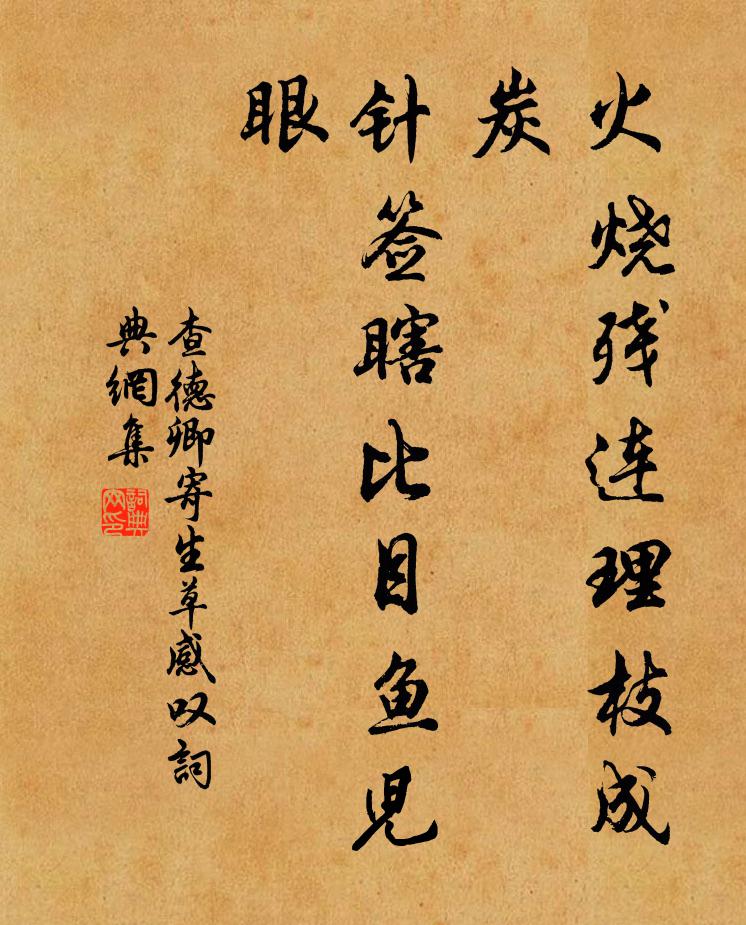 火烧残连理枝成
炭
针签瞎比目鱼児
眼
查德卿寄生草感叹词
典網集
詞典网印